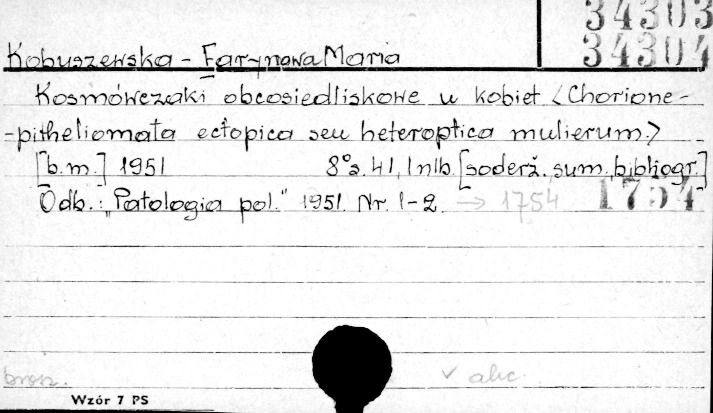 34303
34304
Kobuszewska-Farynowa Maria
Kosmówczaki obcosiedliskowe u kobiet <Chorione-
-pitheliomata ectopica seu heteroptica mulierum>
[b.m.] 1951 8°s. 41, 1 nlb. [soderž. sum., bibliogr.]
Odb.: "Patologia pol." 1951. Nr. 1-2. → 1754 1754
brosz. ✓ abc.
Wzór 7 PS